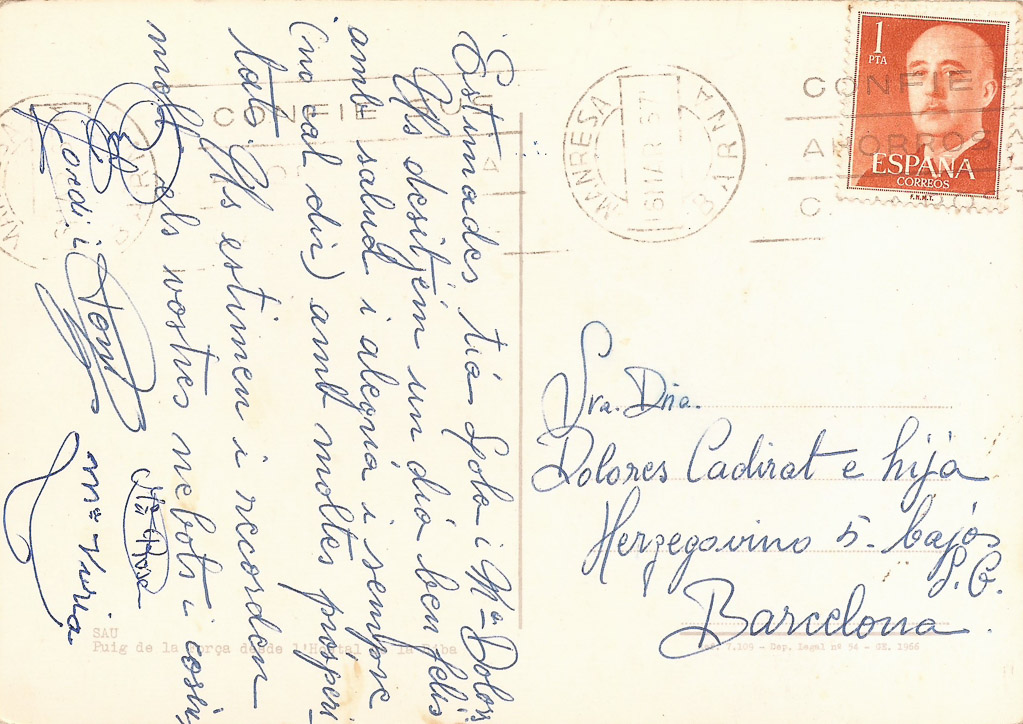 Estimades tia Lola i Mª Dolors
Us desitjem un dia ben feliç
amb salud i alegria i sempre
(no cal dir) amb moltes prosperi-
tats. Us estimen i recorden
molt els vostres nebots i cosins
Jordi i
Mª Rosa
Mª Núria
SAU
Puig de la Força desde l'Hostal
MANRESA
BARNA
CONFIE
AHORROS
1
PTA
ESPAÑA
CORREOS
F.N.M.T.
Sra. Dña.
Dolores Cadirat e hija
Herzegovino 5- bajos
S.G.
Barcelona.
7.109 - Dep. legal nº 94 - GE. 1966